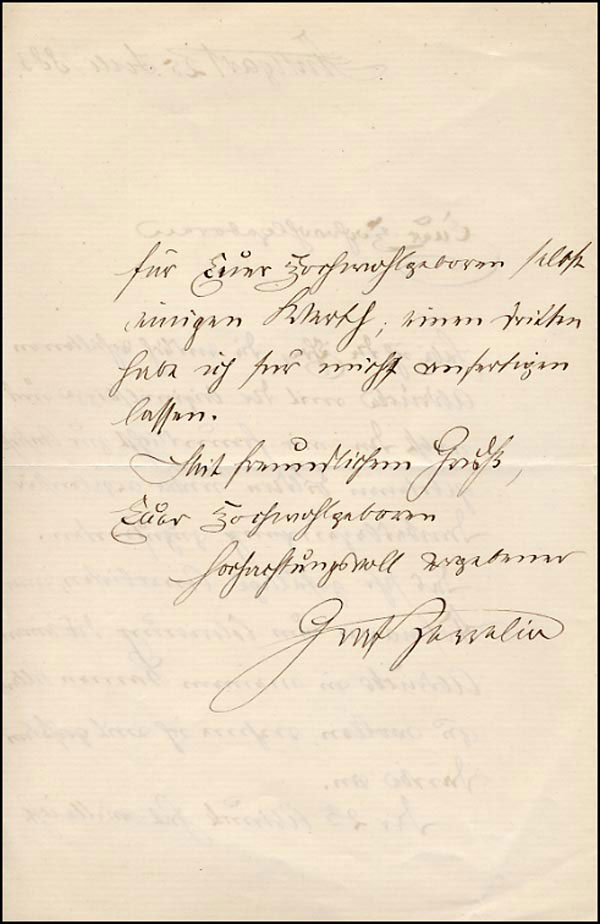 für Euer Hochwohlgeboren selbst
einigen Werth; einen dritten
habe ich für mich anfertigen
lassen.
Mit freundlichem Gruß,
Euer Hochwohlgeboren
hochachtungsvoll ergebener
Graf Zeppelin